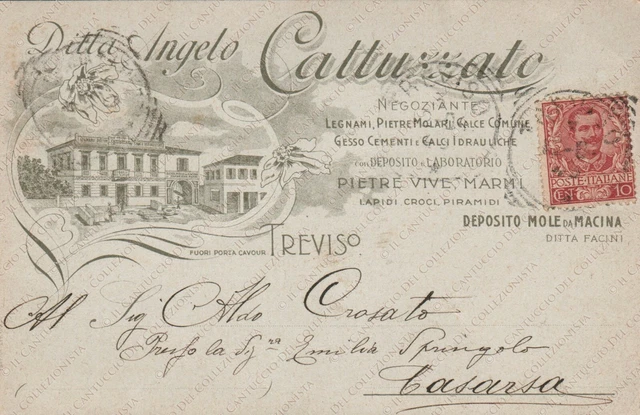 Ditta Angelo Cattuzzato
Negoziante
Legnami, Pietre Molari, Calce Comune
Gesso Cementi e Calci Idrauliche
con Deposito e Laboratorio
Pietre Vive, Marmi
Lapidi Croci, Piramidi
Deposito Mole da Macina
Ditta Facini
Fuori Porta Cavour
Treviso
Poste Italiane
10
Al Sig Aldo Crosato
Presso la Sigra Emilia Springolo
Casarsa
IL CANTUCCIO DEL COLLEZIONISTA